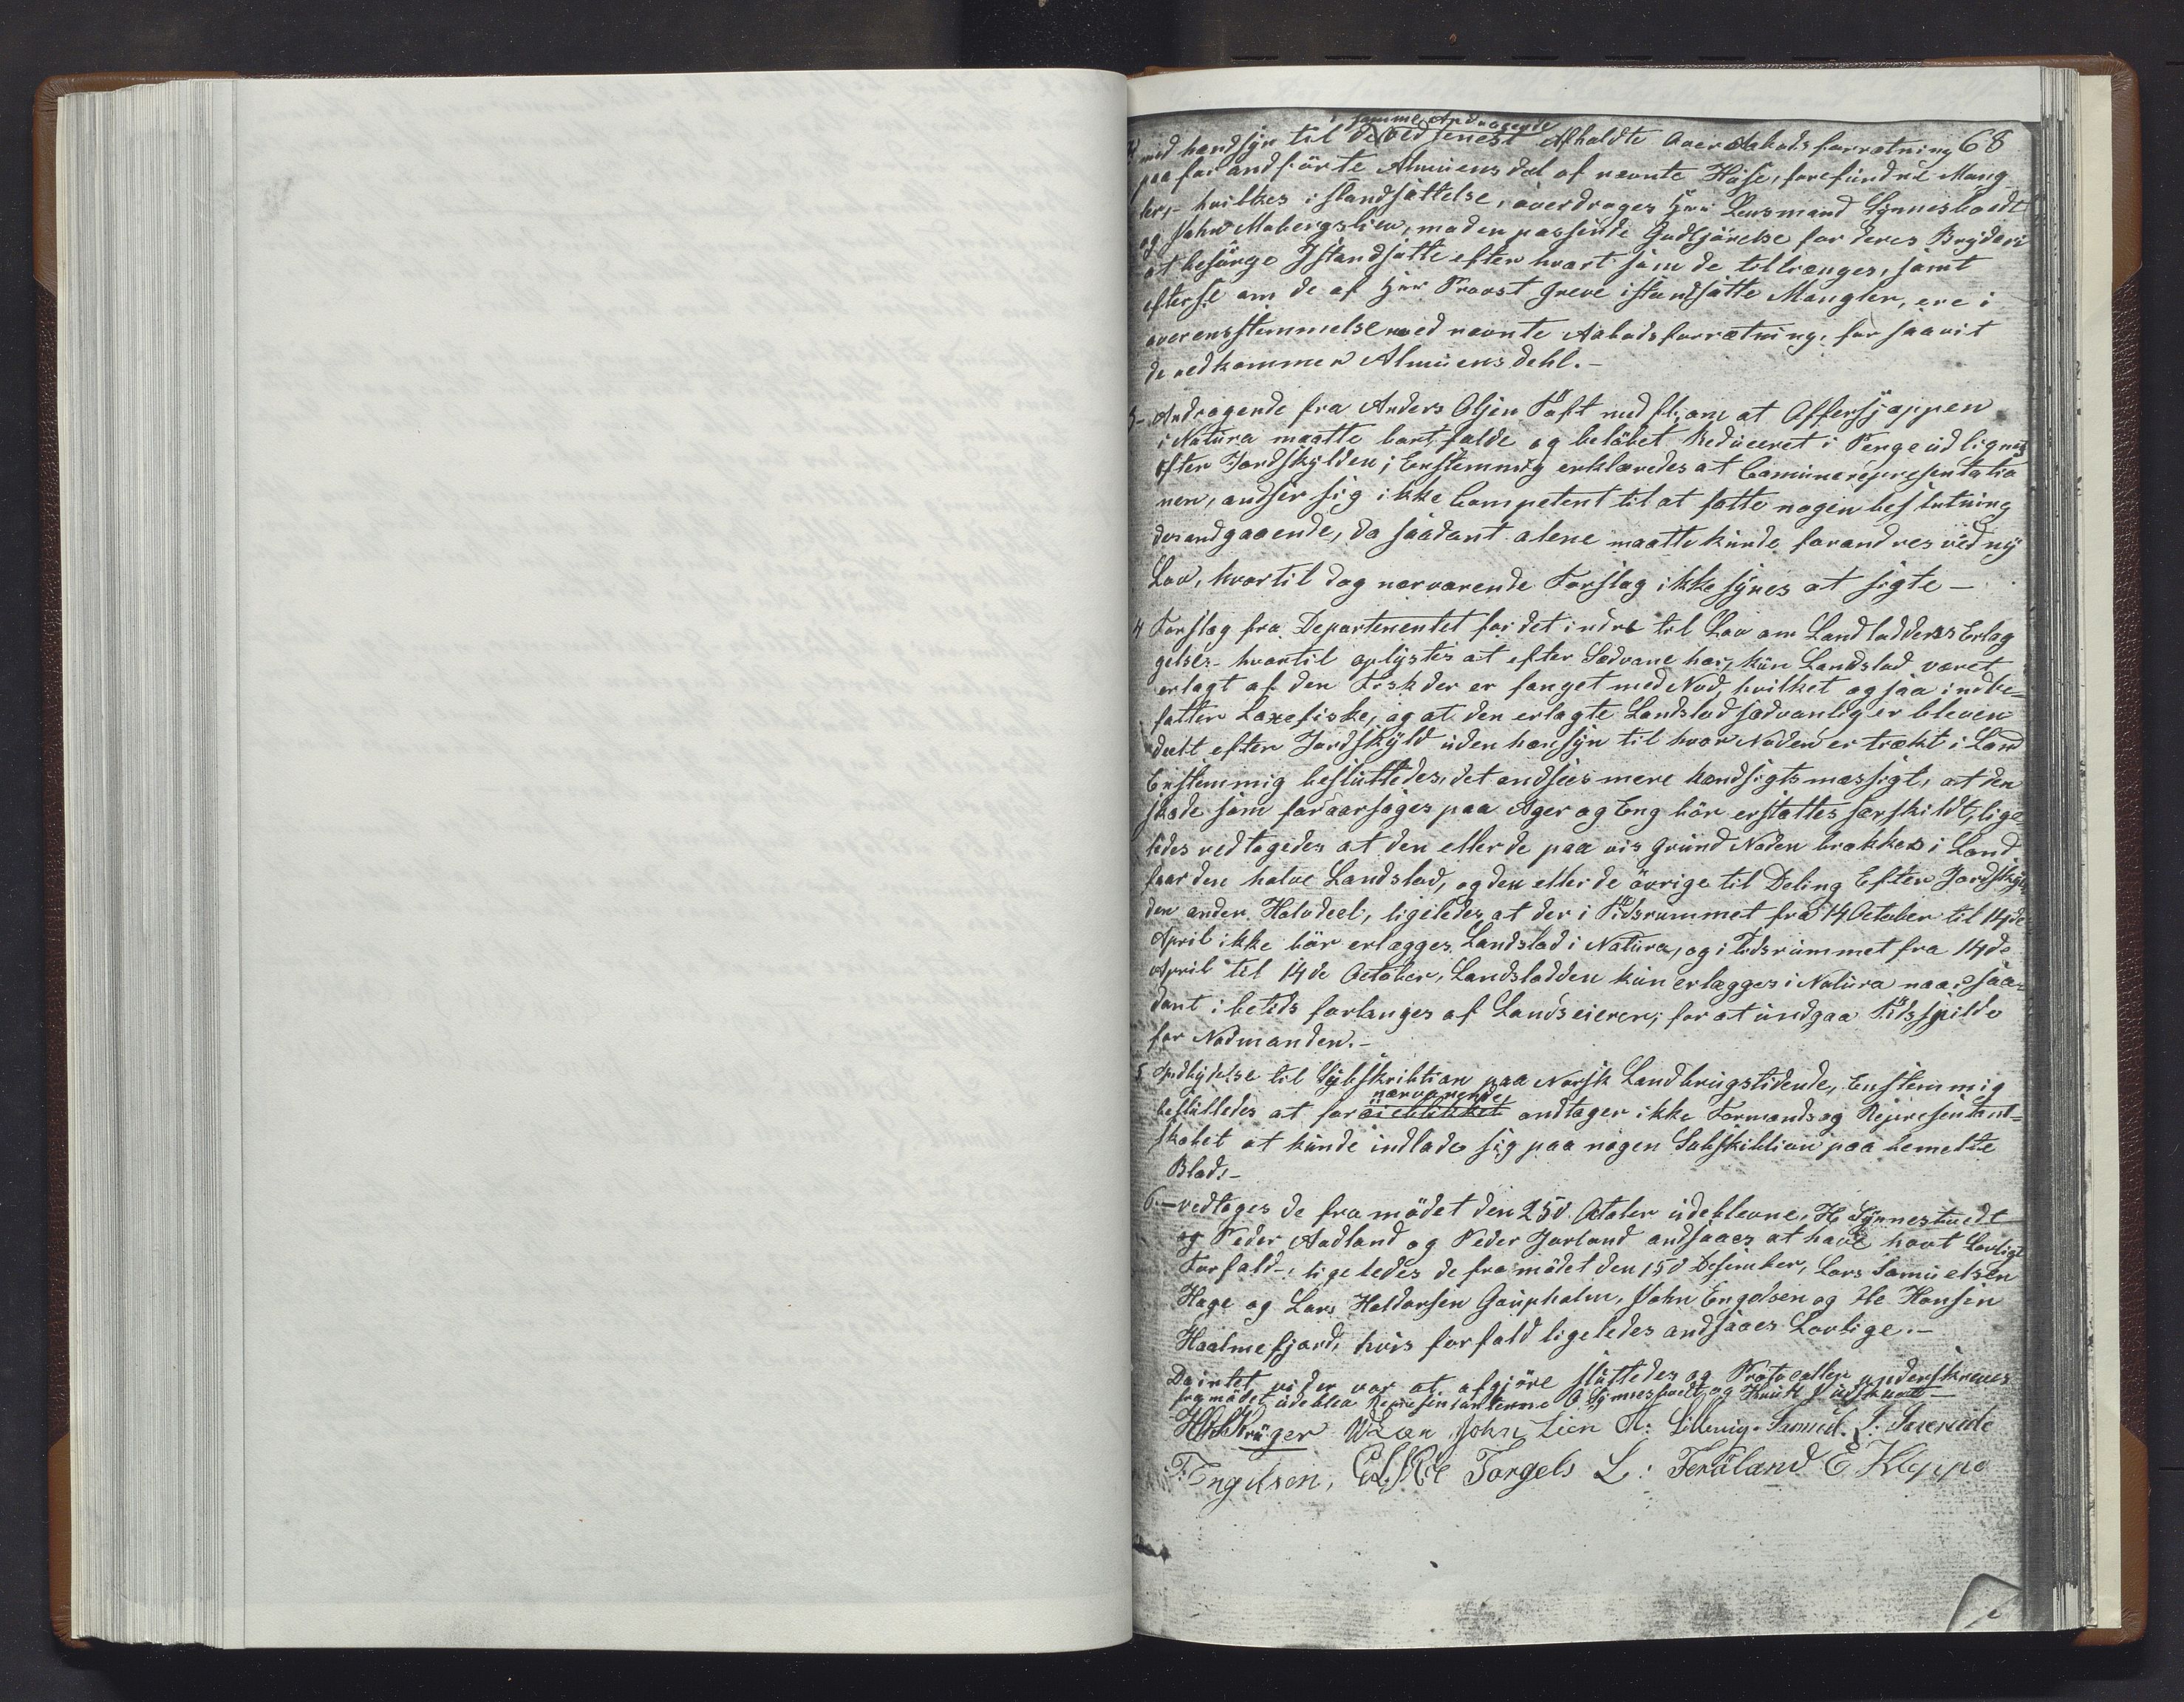 samme Andragende
med hændsÿn til de ved senest Afholdte Over Aabods forretning 68
paa for andförte Almuens del af nevnte Huse, forefundne Mang
ler, hvilkes istandsættelse, överdrages Hrr Lensmand Synnesvedt
og John Mobergslien, mod en passende Godtjörelse for deres Brÿderi
at besörge Istandsatte efter hvert som de tiltrænges, samt
efterse om de af Hrr Provst Greve istandsatte Mangler, ere i
overensstemmelse med nevnte Aabodsforretning, for saavit
de vedkommer Almuens dehl.-
3- Andragende fra Anders Olsen Tøft med fl. om at Offersjeppen
i Natura maatte bortfalde og belöbet Reduceret i Penge udlignes
efter Jordskylden; Enstemmig erklæredes at Comunerepresentatio
nen, andser sig ikke Competent til at fatte nogen beslutning
derandgaaende, da saadant alene maatte kunde forandres ved nÿ
Lov, hvortil dog nærværende Forslag ikke sÿnes at sigte -
4 Forslag fra Departementet for det indre til Lov om Landloddens Erlæg
gelse - hvortil oplÿstes at efter Sedvane her, kun Landslod været
erlagt af den Fisk der er fanget med Nod, hvilket ogsaa indbe=
fatter Laxefiske, og at den erlagte Landslod sædvanlig er bleven
deelt efter Jordskÿld uden hensÿn til hvor Noden er trækt i Land
Enstemmig besluttedes, det andsees mere hændsigtsmæssigt, at den
skade som foraarsages paa Ager og Eng bör erstattes særskildt, lige
ledes vedtagedes at den eller de paa vis Grund Noden trækkes i Land
faar den halve Landslod, og den eller de övrige til Deling Efter Jordskÿl
den anden Halvdeel, ligeledes at der i Tidsrummet fra 14 October til 14de
April ikke bör erlægges Landslod i Natura, og i Tidsrummet fra 14de
April til 14de October, Landslodden kun erlægges i Natura naar saa=
dant i betids forlanges af Landseieren, for at undgaa Tidsspilde
for Nodmanden.-
5 Indbÿdelse til Subskribtion paa Norsk Landbrugstidende, Enstemmig
nærværende
besluttedes at for öieblikket andtager ikke Formands og Representant=
skabet at kunde indlade sig paa nogen Subskibtion paa bemelte
Blad.-
6.- vedtages de fra mödet den 25d October udeblevne, H Sÿnnestvedt
og Peder Aadland og Peder Jarland andsaaes at have havt Lovligt
Forfald - ligeledes de fra mödet den 15d Desember, Lars Samuelsen
Hage og Lars Haldorsen Gaupholm, John Engelsen og Ole Hansen
Haalmefjord, hvis forfald ligeledes andsaaes Lovlige.-
Da intet vider var at afgjöre sluttedes og Protocollen underskreves
fra mödet udeblev Representanterne O Sÿnnestvedt og Knut
HC Krüger W Læn John Lien A: Samuel. S.
T: Engelsen, Torgels L: E Kleppe